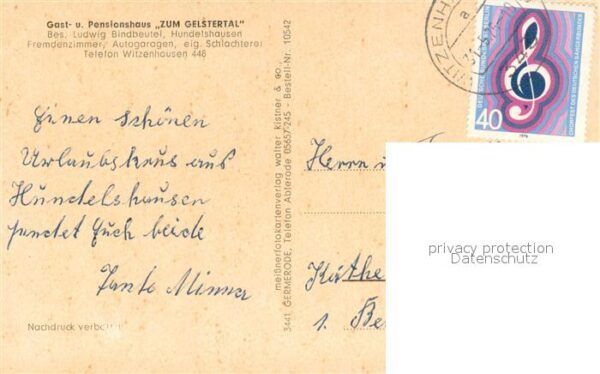 Gast- u. Pensionshaus „ZUM GELSTERTAL"
Bes. Ludwig Bindbeutel, Hundelshausen
Fremdenzimmer, Autogaragen, eig. Schlachterei
Telefon Witzenhausen 448
Einen schönen
Urlaubskuss aus
Hundelshausen
sendet Euch beide
Tante Minna
Nachdruck verboten
meißnerfotokartenverlag walter Kistner & co.
3441 GERMERODE, Telefon Abterode 05657-245 - Bestell-Nr. 10542
WITZENH
a
DEUTSCHE BUNDESPOST BERLIN
CHORFEST DES DEUTSCHEN SÄNGERBUNDES
40
1976
Herrn u.
Käthe
1. Be
privacy protection
Datenschutz